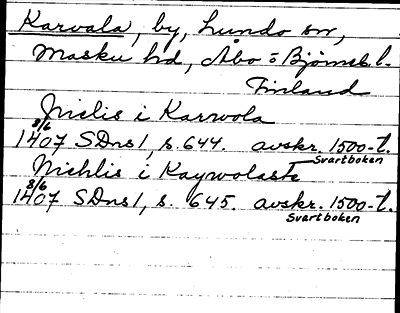 Karvala, by, Lundo sn,
Masku hd, Åbo o Björneb. l.
Finland
Nielis i Karwola
8/6
1407 SDns 1, s. 644. avskr. 1500-t.
Svartboken
Nichlis i Kaywolaste
8/6
1407 SDns 1, s. 645. avskr. 1500-t.
Svartboken